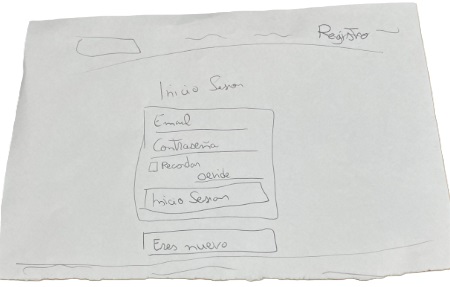 Registro
Inicio Sesion
Email
Contraseña
Recordar
olvide
Inicio Sesion
Eres nuevo